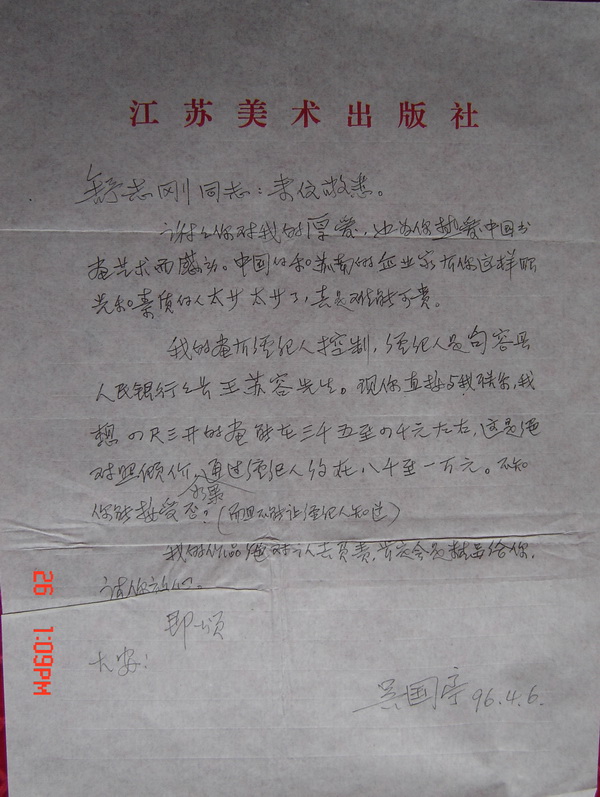 江苏美术出版社
舒志刚同志：来信敬悉。
谢谢你对我的厚爱，也为你热爱中国书
画艺术而感动。中国和苏南的企业家有你这样眼
光和素质的人太少太少了，真是难能可贵。
我的画有经纪人控制，经纪人是句容县
人民银行行长王苏容先生。现你直接与我联系，我
想4尺三开的画能在三千五至4千元左右，这是绝
对照顾价，通过经纪人约在八千至一万元。不知
你能接受否？（而且不能让经纪人知道）
永果
我的作品绝对认真负责，肯定会是精品给你，
请你放心。
即颂
大安！
吴国亭 96.4.6.
26 1:09PM